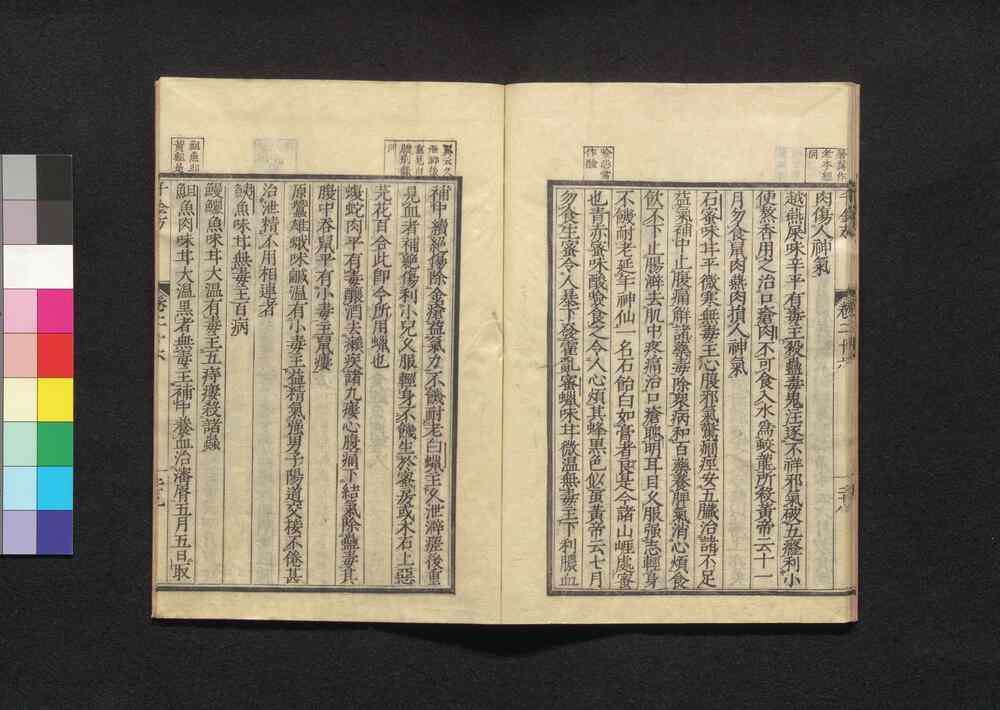 肉傷人神氣
越燕屎味辛平有毒主殺蠱毒鬼注逐不祥邪氣破五癃利小
便熬香用之治口瘡肉不可食入水為蛟龍所殺黃帝云十一
月勿食鼠肉燕肉損人神氣
石蜜味甘平微寒無毒主心腹邪氣驚癇痙安五臟治諸不足
益氣補中止腹痛解諸藥毒除衆病和百藥養脾氣消心煩食
飲不下止腸澼去肌中疼痛治口瘡聰明耳目久服強志輕身
不饑耐老延年神仙一名石飴白如膏者良是今諸山崖處蜜
也青赤蜜味酸噞食之令人心煩其蜂黑色似蝱黃帝云七月
勿食生蜜令人暴下發霍亂蜜蠟味甘微温無毒主下利膿血
補中續絕傷除金瘡益氣力不饑耐老白蠟主久泄澼瘥後重
見血者補絕傷利小兒久服輕身不饑生於蜜房或木石上惡
芫花百合此即今所用蠟也
蝮蛇肉平有毒釀酒去癩疾諸九瘻心腹痛下結氣除蠱毒其
腹中吞鼠平有小毒主鼠瘻
原蠶雄蛾味鹹温有小毒主益精氣強男子陽道交接不倦甚
治泄精不用相連者
鮧魚味甘無毒主百病
鰻鱺魚味甘大温有毒主五痔瘻殺諸蟲
䱇魚肉味甘大温黑者無毒主補中養血治瀋脣五月五日取